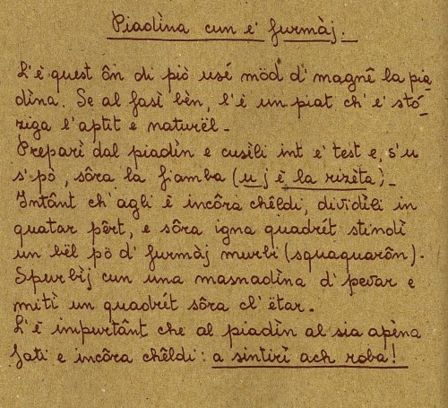 Piadìna cun e' furmàj.
L'è quest ôn di piò usé möd d' magnê la pia
dìna. Se al fasì bèn, l'è un piat ch' e' stó-
ziga l'aptit e naturêl.
Preparì dal piadìn e cusìli int e' test e, s'u
s'pò, sôra la fiamba (u j è la rizèta).
Intânt ch'agli è incôra chêldi, dividìli in
quatar pêrt, e sôra igna quadrét stindì
un bël pò d' furmàj murbi (squaquarôn).
Spurbìj cun una masnadìna d' pevar e
mitì un quadrét sôra cl' ëtar.
L'è impurtânt che al piadìn al sia apèna
fati e incôra chêldi: a sintirì ach roba!